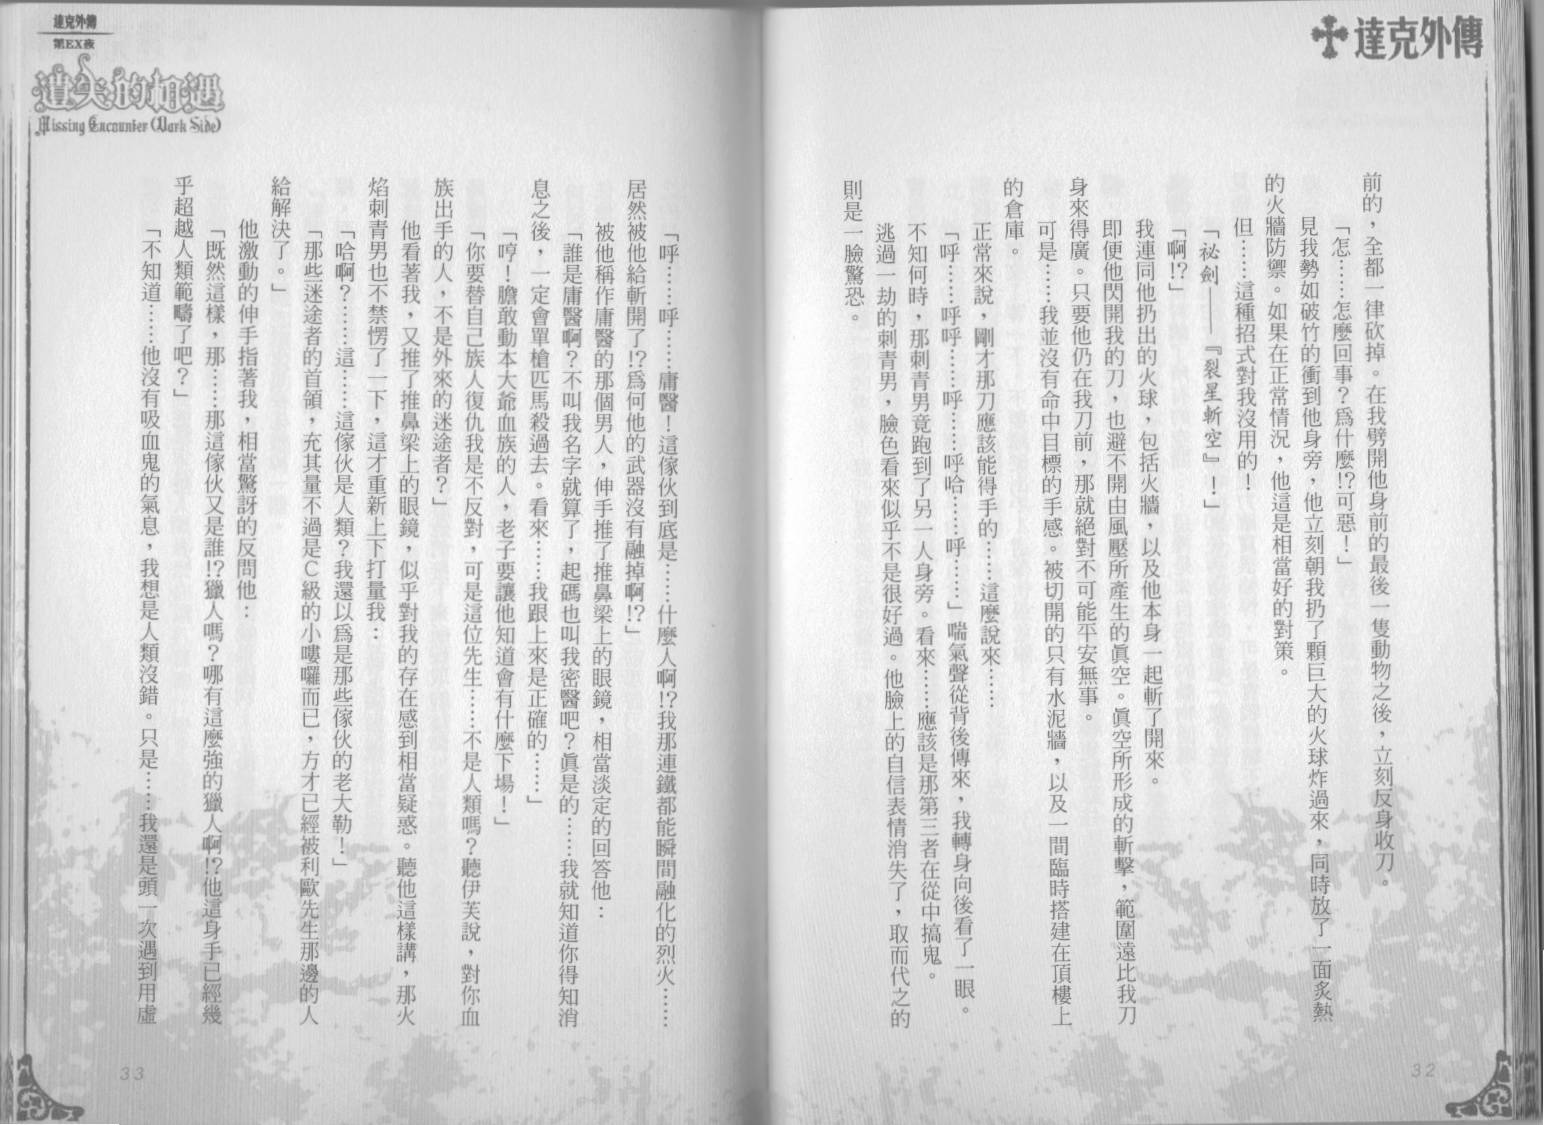 達克外傳
前的，全都一律砍掉。在我劈開他身前的最後一隻動物之後，立刻反身收刀。
「怎……怎麼回事？爲什麼!?可惡！」
見我勢如破竹的衝到他身旁，他立刻朝我扔了顆巨大的火球炸過來，同時放了一面炙熱
的火牆防禦。如果在正常情況，他這是相當好的對策。
但……這種招式對我沒用的！
「祕劍——『裂星斬空』！」
「啊!?」
我連同他扔出的火球，包括火牆，以及他本身一起斬了開來。
即便他閃開我的刀，也避不開由風壓所產生的眞空。眞空所形成的斬擊，範圍遠比我刀
身來得廣。只要他仍在我刀前，那就絕對不可能平安無事。
可是……我並沒有命中目標的手感。被切開的只有水泥牆，以及一間臨時搭建在頂樓上
的倉庫。
正常來說，剛才那刀應該能得手的……這麼說來……
「呼……呼呼……呼……呼哈……呼……」喘氣聲從背後傳來，我轉身向後看了一眼。
不知何時，那刺青男竟跑到了另一人身旁。看來……應該是那第三者在從中搞鬼。
逃過一劫的刺青男，臉色看來似乎不是很好過。他臉上的自信表情消失了，取而代之的
則是一臉驚恐。
32
達克外傳
第EX夜
遺失的相遇
Missing Encounter (Dark Side)
「呼……呼……庸醫！這傢伙到底是……什麼人啊!?我那連鐵都能瞬間融化的烈火……
居然被他給斬開了!?爲何他的武器沒有融掉啊!?」
被他稱作庸醫的那個男人，伸手推了推鼻梁上的眼鏡，相當淡定的回答他：
「誰是庸醫啊？不叫我名字就算了，起碼也叫我密醫吧？眞是的……我就知道你得知消
息之後，一定會單槍匹馬殺過去。看來……我跟上來是正確的……」
「哼！膽敢動本大爺血族的人，老子要讓他知道會有什麼下場！」
「你要替自己族人復仇我是不反對，可是這位先生……不是人類嗎？聽伊芙說，對你血
族出手的人，不是外來的迷途者？」
他看著我，又推了推鼻梁上的眼鏡，似乎對我的存在感到相當疑惑。聽他這樣講，那火
焰刺青男也不禁愣了一下，這才重新上下打量我：
「哈啊？……這……這傢伙是人類？我還以爲是那些傢伙的老大勒！」
「那些迷途者的首領，充其量不過是C級的小嘍囉而已，方才已經被利歐先生那邊的人
給解決了。」
他激動的伸手指著我，相當驚訝的反問他：
「既然這樣，那……那這傢伙又是誰!?獵人嗎？哪有這麼強的獵人啊!?他這身手已經幾
乎超越人類範疇了吧？」
「不知道……他沒有吸血鬼的氣息，我想是人類沒錯。只是……我還是頭一次遇到用虛
33